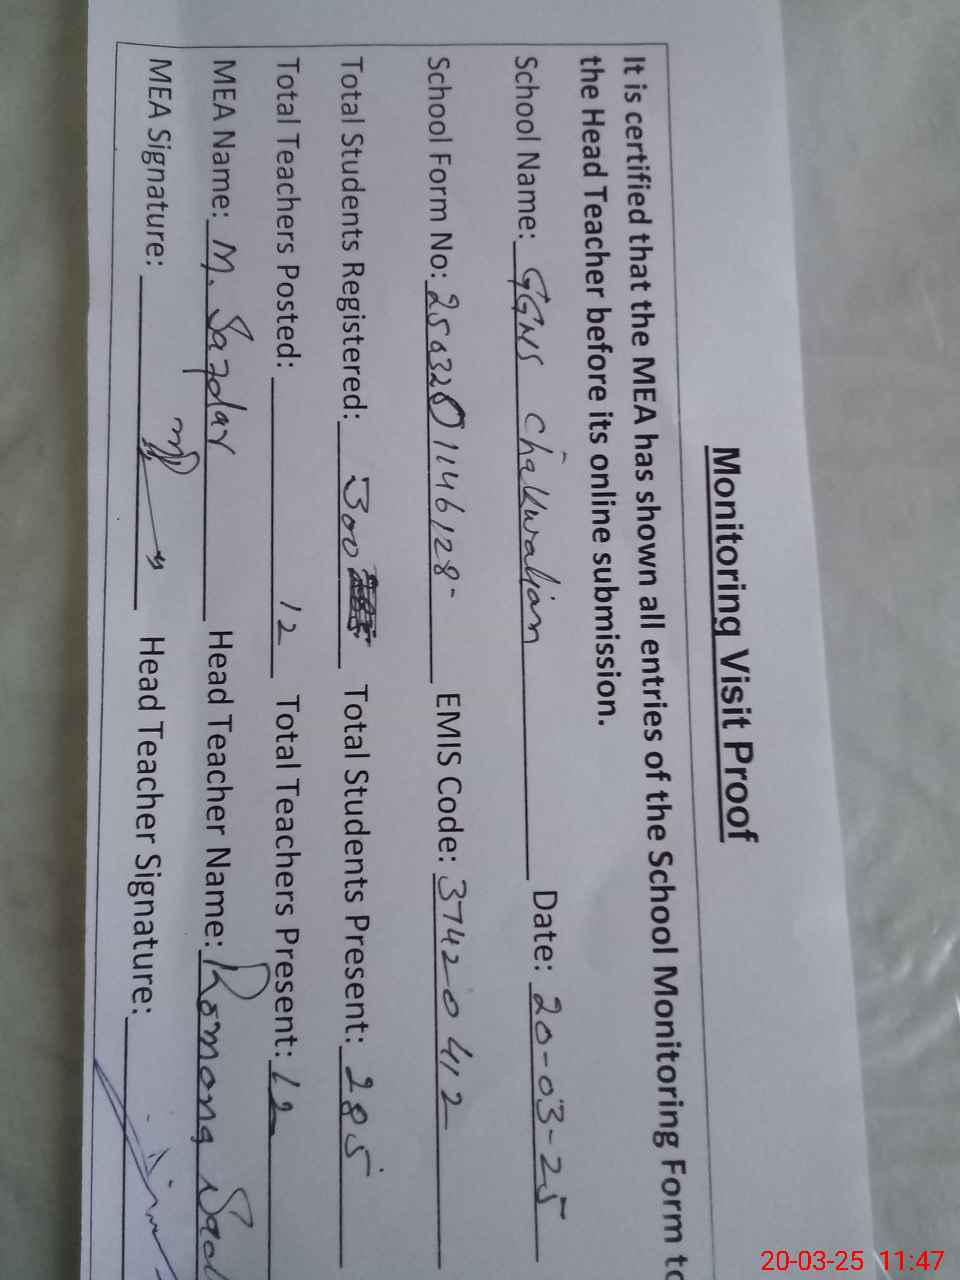 Monitoring Visit Proof
It is certified that the MEA has shown all entries of the School Monitoring Form to
the Head Teacher before its online submission.
School Name: GGHS Chakwalian Date: 20-03-25
School Form No: EMIS Code: 37420412
Total Students Registered: 300 Total Students Present: 285
Total Teachers Posted: 12 Total Teachers Present: 12
MEA Name: M. Safdar Head Teacher Name: Romana
MEA Signature: Head Teacher Signature:
20-03-25 11:47